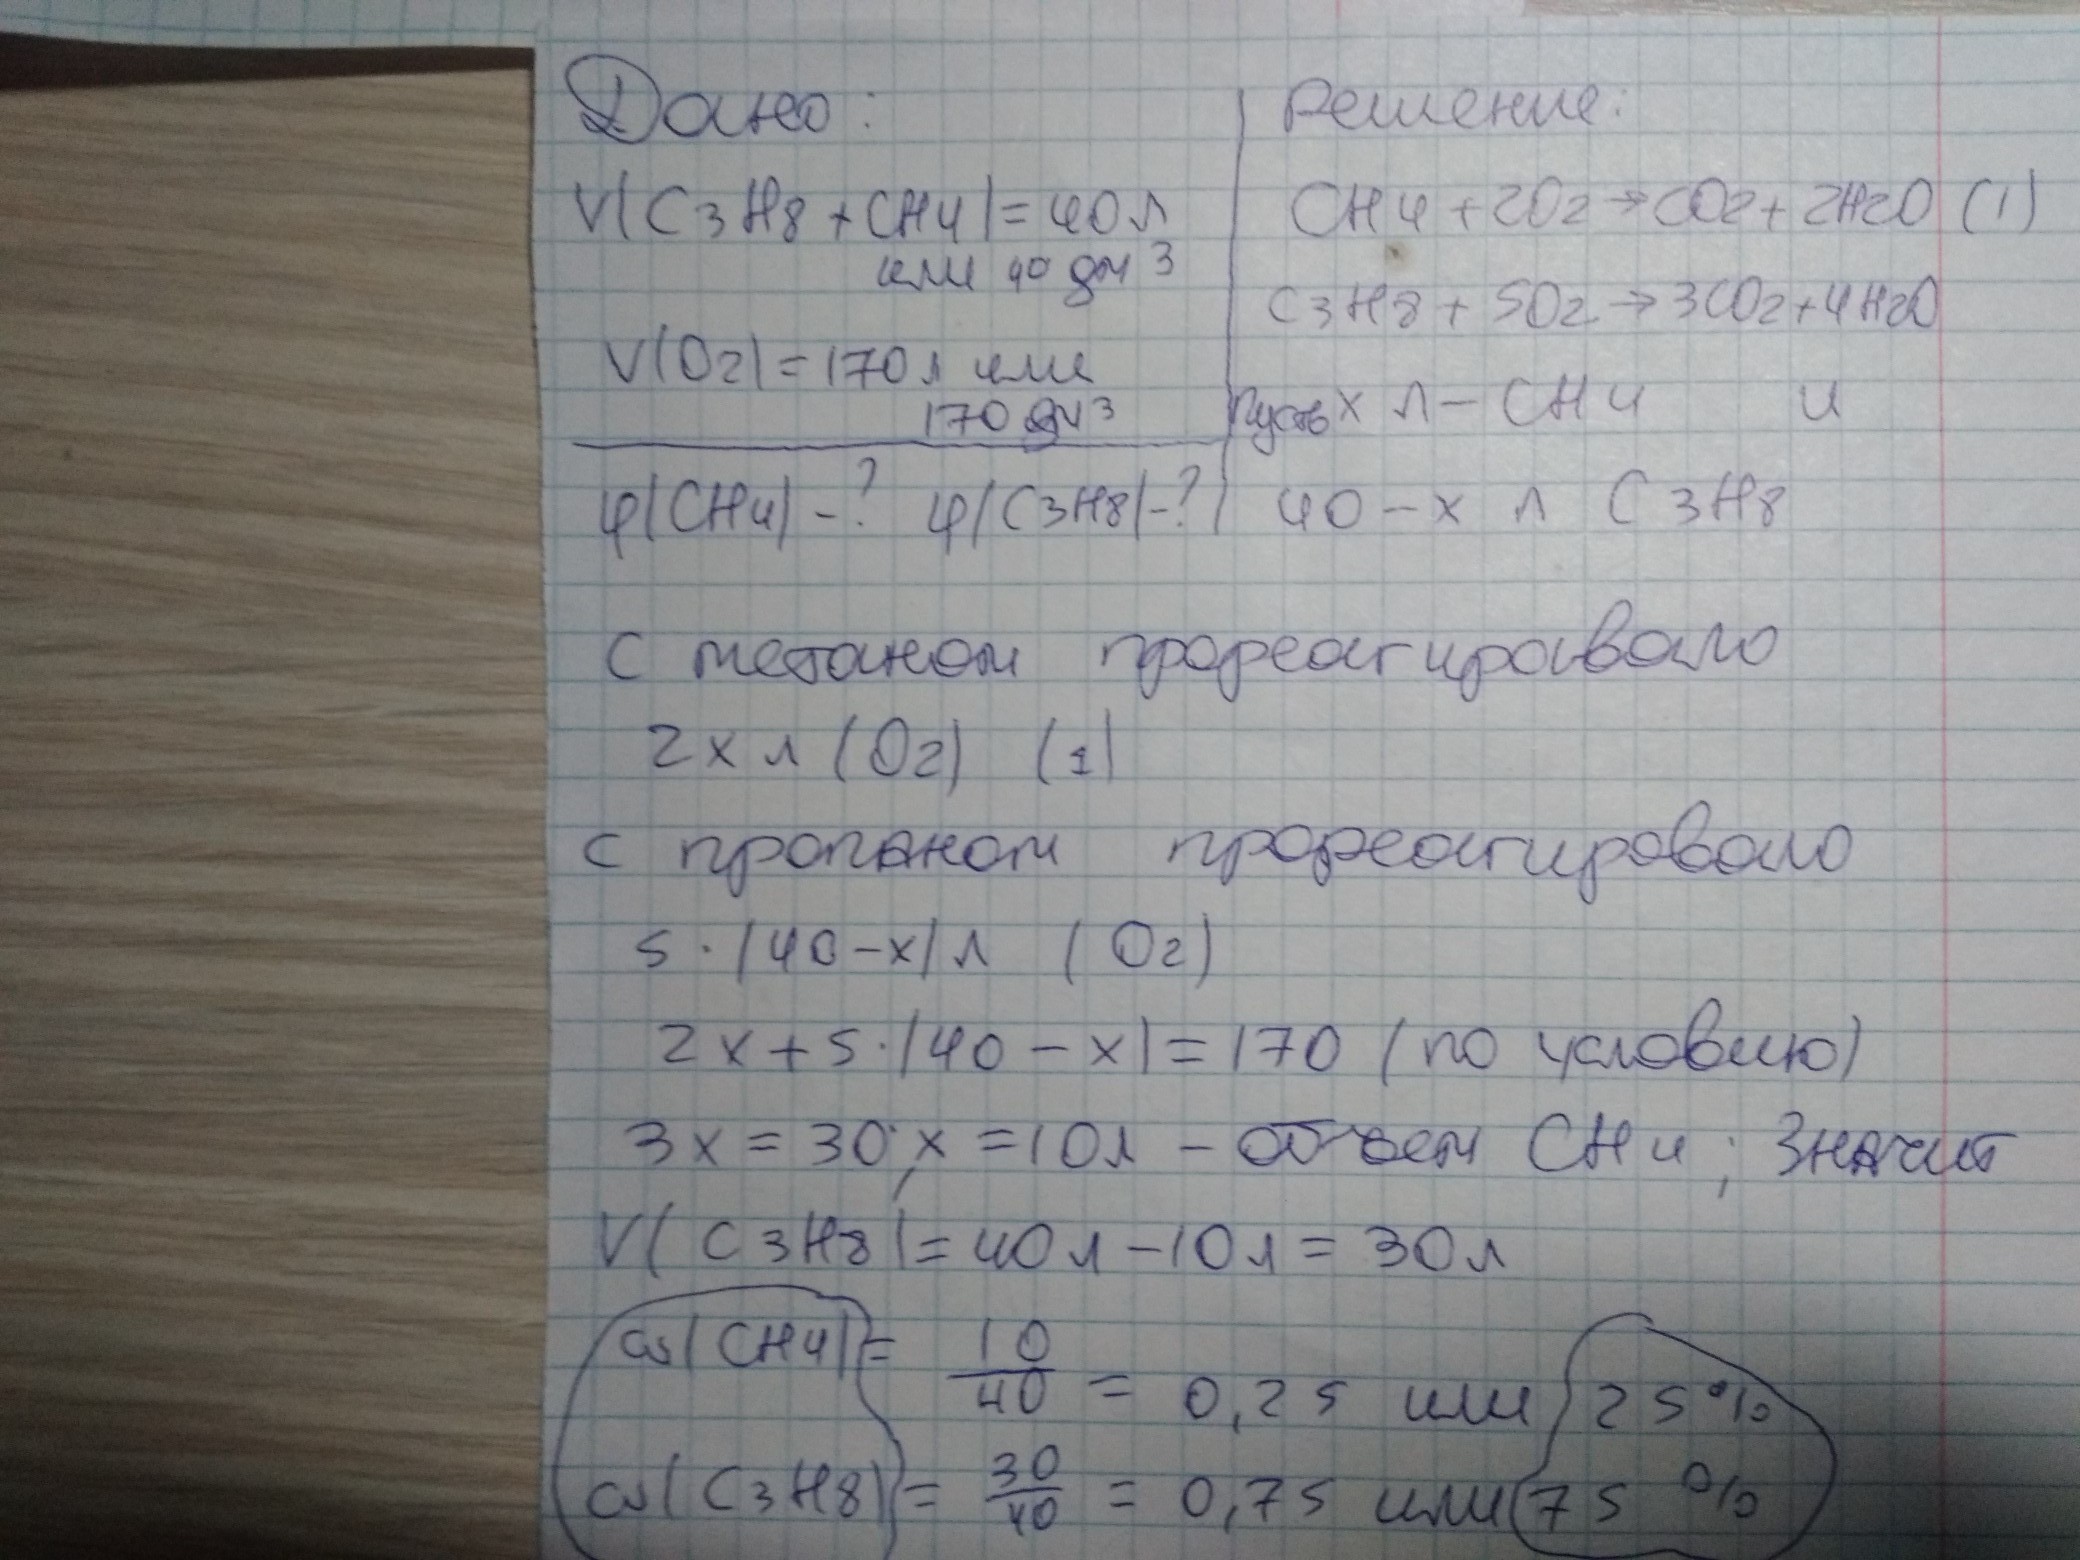 Дано:
V(C3H8 + CH4) = 40 л
или 40 дм3
V(O2) = 170 л или
170 дм3
φ(CH4) - ? φ(C3H8) - ?
Решение:
CH4 + 2O2 → CO2 + 2H2O (1)
C3H8 + 5O2 → 3CO2 + 4H2O
Пусть x л - CH4 и
40 - x л C3H8
С метаном прореагировало
2x л (O2) (1)
С пропаном прореагировало
5 · (40 - x) л (O2)
2x + 5 · (40 - x) = 170 (по условию)
3x = 30; x = 10 л - объем CH4; Значит
V(C3H8) = 40 л - 10 л = 30 л
ω(CH4) = 10/40 = 0,25 или 25%
ω(C3H8) = 30/40 = 0,75 или 75 %